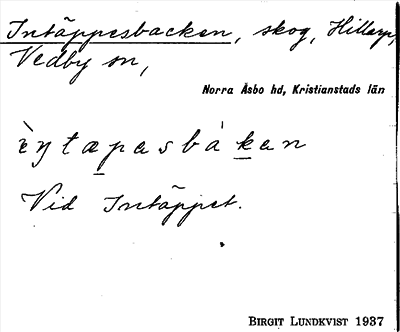 Intäppesbacken, skog, Hillarp,
Vedby sn,
Norra Åsbo hd, Kristianstads län
ìŋtæpasbàkan
Vid Intäppet.
BIRGIT LUNDKVIST 1937